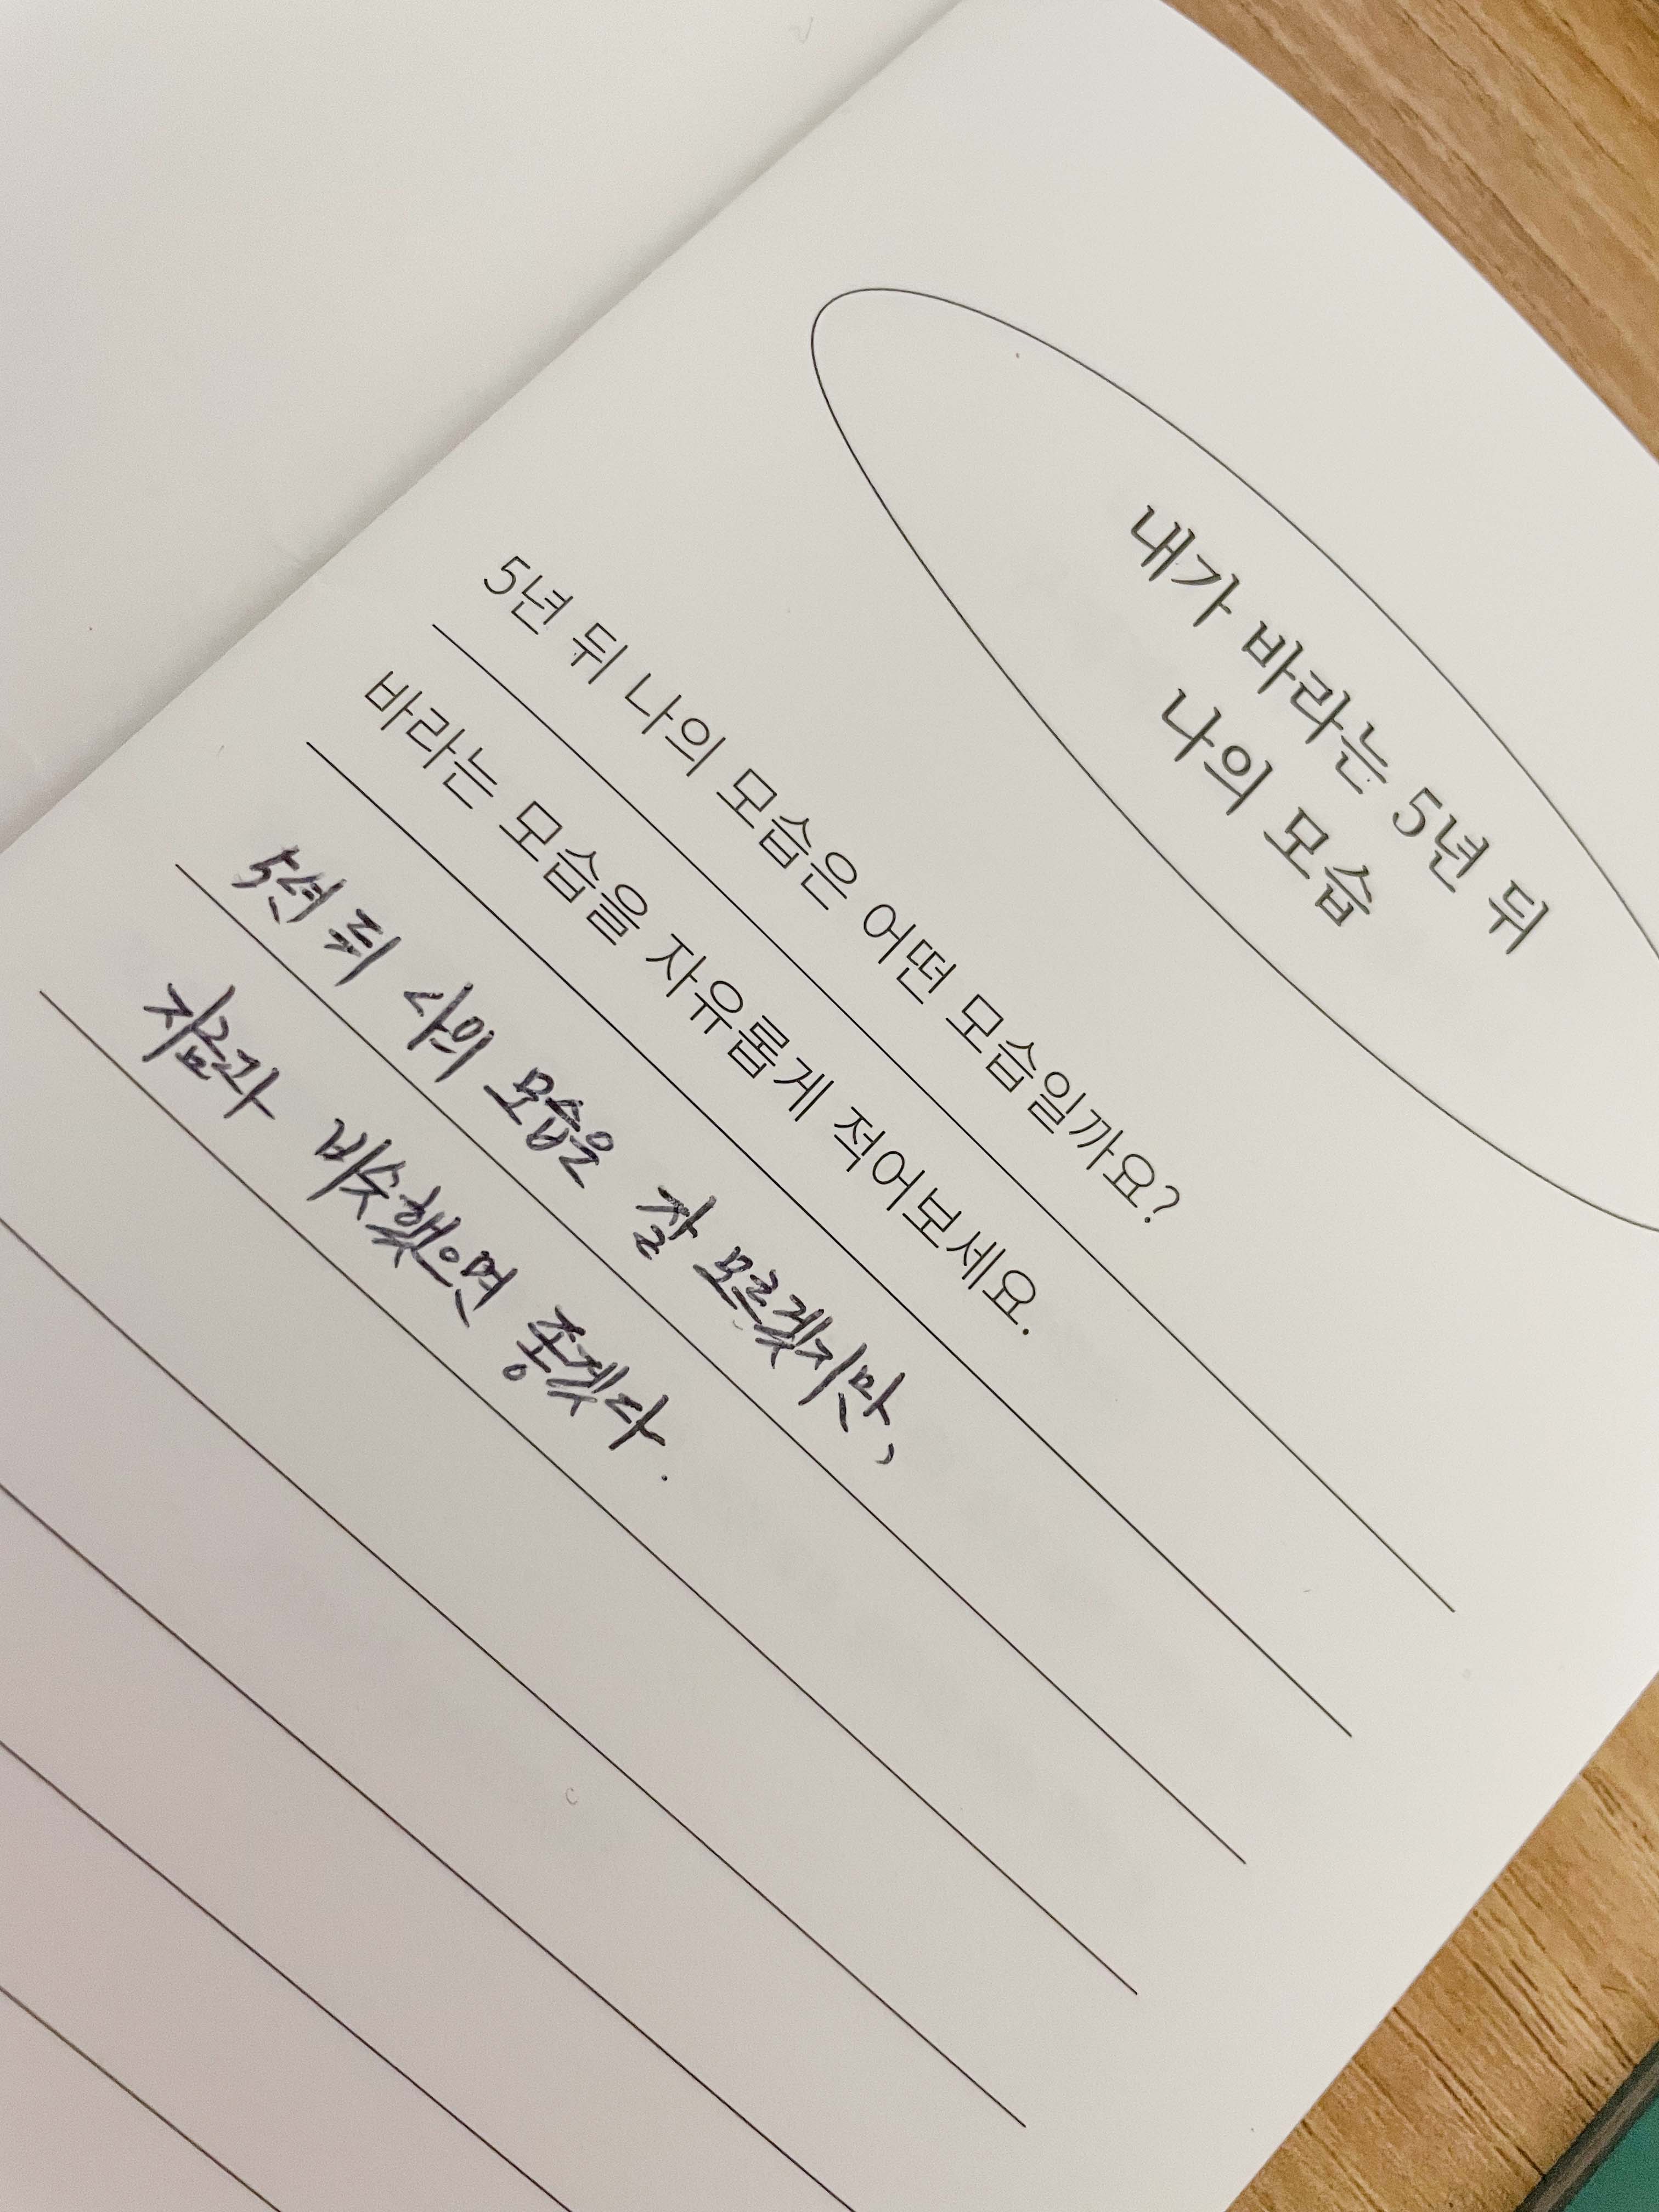 내가 바라는 5년 뒤
나의 모습
5년 뒤 나의 모습은 어떤 모습일까요?
바라는 모습을 자유롭게 적어보세요.
5년 뒤 나의 모습은 잘 모르겠지만,
지금과 비슷했으면 좋겠다.